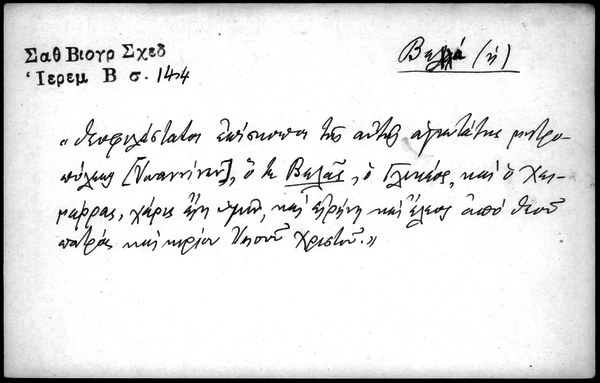 Σαθ Βιογρ Σχεδ
Ἱερεμ Β σ. 144
Βελλά (ἡ)
«Θεοφιλέστατοι ἐπίσκοποι τῆς αὐτῆς ἁγιωτάτης μητρο-
πόλεως [Ἰωαννίνων], ὅ τε Βελᾶς, ὁ Γλυκέος, καὶ ὁ Χει-
μάρρας, χάρις εἴη ὑμῖν, καὶ εἰρήνη καὶ ἔλεος ἀπὸ Θεοῦ
πατρός καὶ κυρίου Ἰησοῦ Χριστοῦ.»